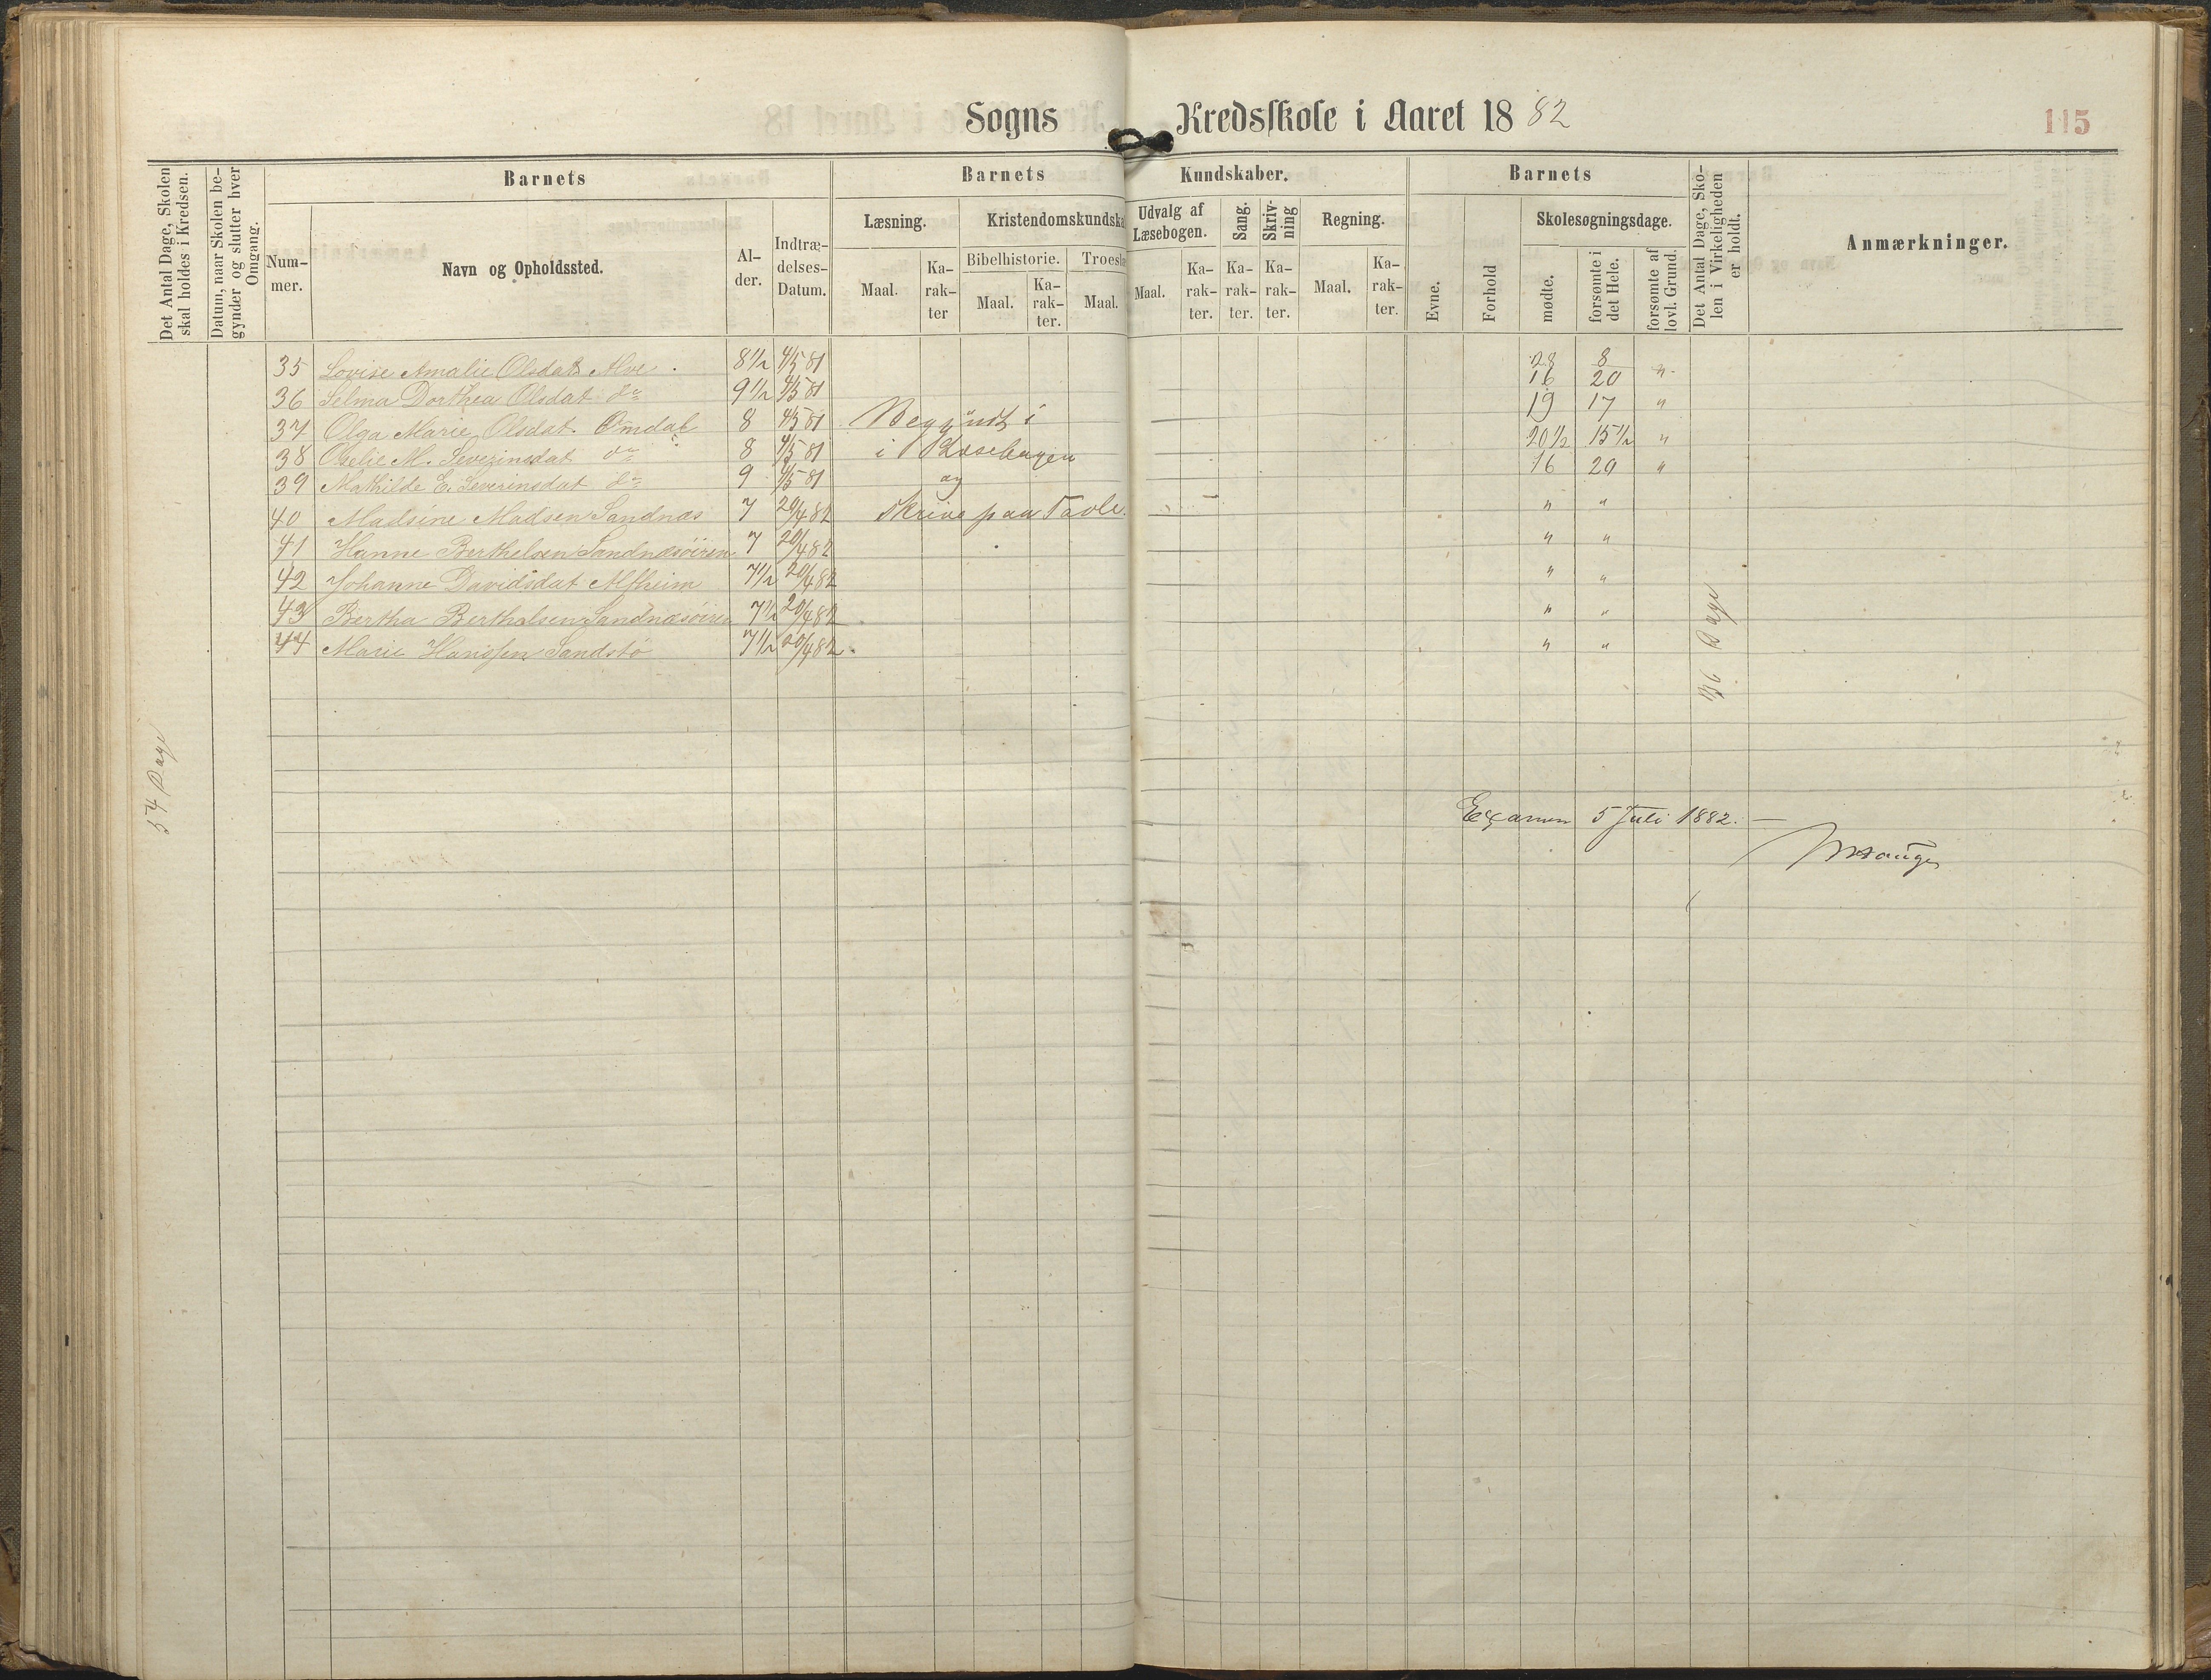 Sogns Kredsskole i Aaret 1882
115
Det Antal Dage, Skolen skal holdes i Kredsen.
Datum, naar Skolen begynder og slutter hver Omgang.
Barnets
Nummer.
Navn og Opholdssted.
Alder.
Indtrædelses-Datum.
Barnets Kundskaber.
Læsning.
Maal.
Karakter
Kristendomskundska
Bibelhistorie.
Maal.
Karakter.
Troesl
Maal.
Udvalg af Læsebogen.
Maal.
Karakter.
Sang.
Karakter.
Skrivning
Karakter.
Regning.
Maal.
Karakter.
Barnets
Evne.
Forhold
Skolesøgningsdage.
mødte.
forsømte i det Hele.
forsømte af lovl. Grund.
Det Antal Dage, Skolen i Virkeligheden er holdt.
Anmærkninger.
35 Lovise Amalie Olsdat Alve. 8 1/2 4/5 81 28 8 "
36 Selma Dorthea Olsdat do 9 1/2 4/5 81 16 20 "
37 Olga Marie Olsdat. Omdal 8 4/5 81 Begyndt i 19 17 "
38 Oselie M. Severinsdat do 8 4/5 81 i Læsebogen 20 1/2 15 1/2 "
39 Mathilde E. Severinsdat do 9 4/5 81 og 16 20 "
40 Madsine Madsen Sandnæs 7 20/4 82 Skrive paa Tavle. " "
41 Hanne Berthelsen Sandnæsøiren 7 20/4 82 " "
42 Johanne Davidsdat Alfheim 7 1/2 20/4 82 " "
43 Bertha Berthelsen Sandnæsøiren 7 1/2 20/4 82 " "
44 Marie Hanssen Sandstø 7 1/2 20/4 82. " "
36 Dage
54 Dage
Examen 5 Juli 1882. —